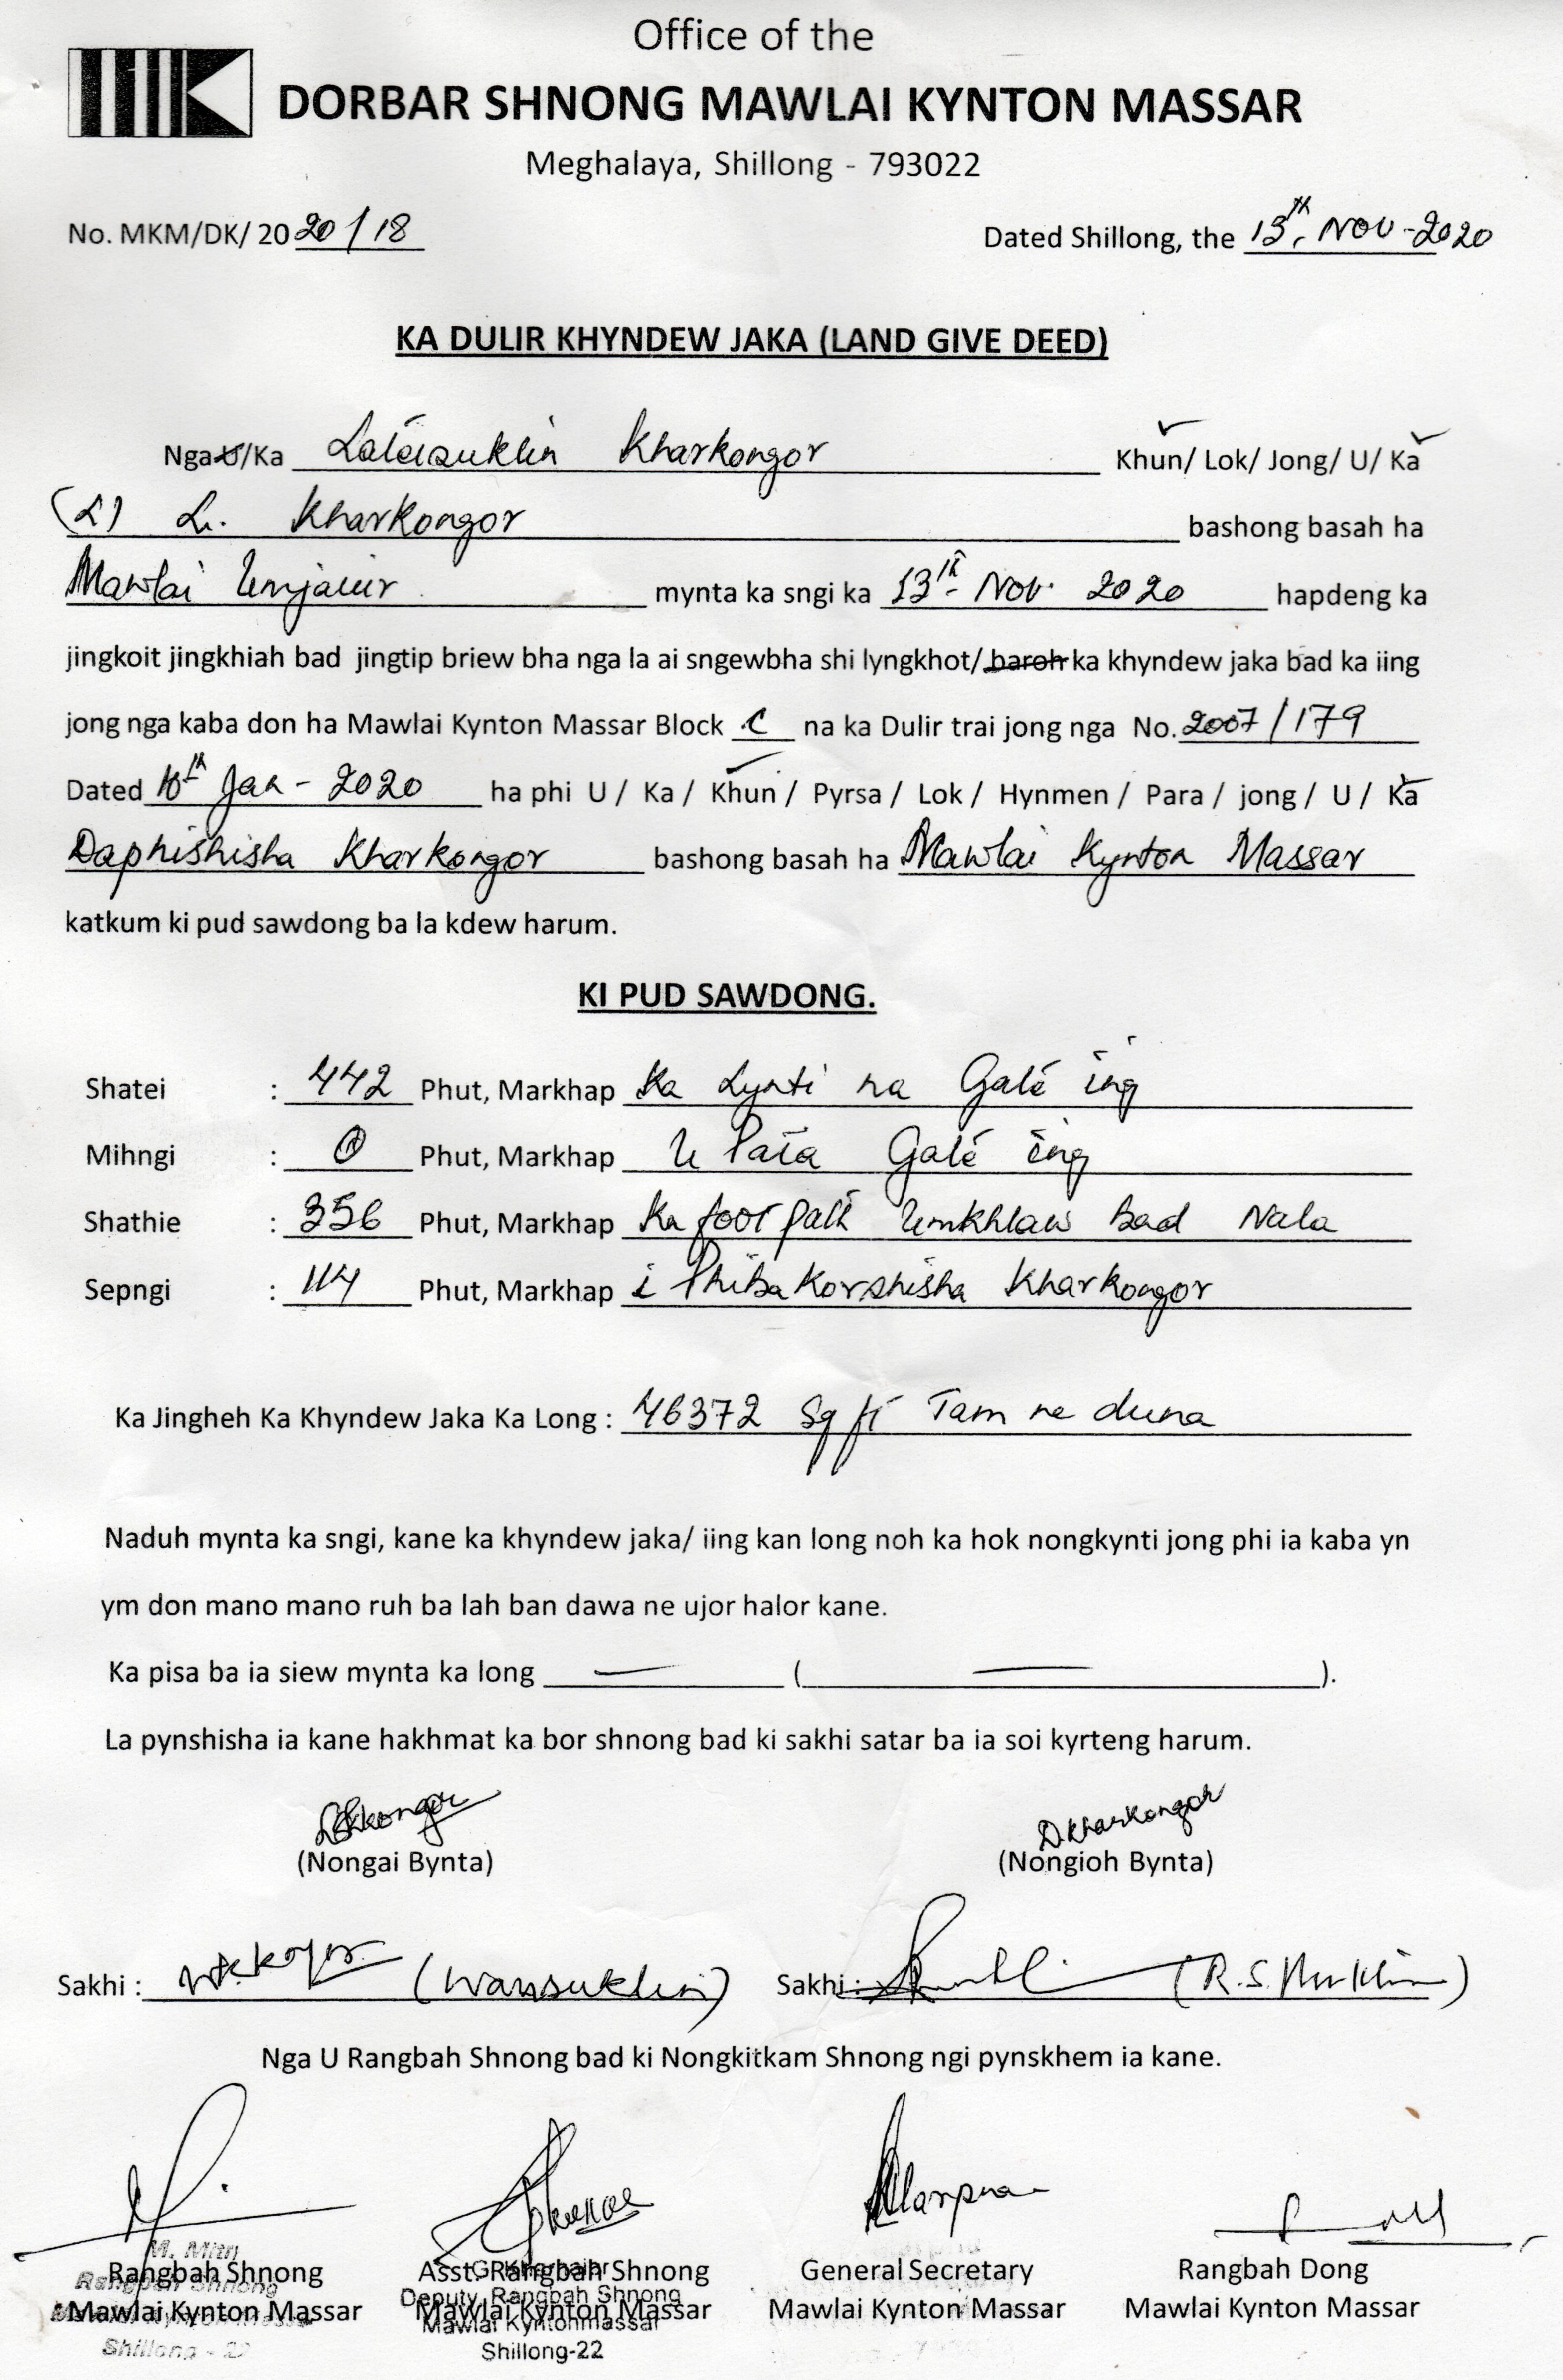 Office of the
DORBAR SHNONG MAWLAI KYNTON MASSAR
Meghalaya, Shillong - 793022
No. MKM/DK/ 2020/18
Dated Shillong, the 13th, Nov - 2020
KA DULIR KHYNDEW JAKA (LAND GIVE DEED)
Nga U/Ka Kharkongor Khun/ Lok/ Jong/ U/ Ka
(L) L. Kharkongor bashong basah ha
Mawlai Umjaiur mynta ka sngi ka 13th - Nov. 2020 hapdeng ka
jingkoit jingkhiah bad jingtip briew bha nga la ai sngewbha shi lyngkhot/ baroh ka khyndew jaka bad ka iing
jong nga kaba don ha Mawlai Kynton Massar Block C na ka Dulir trai jong nga No. 2007/179
Dated 10th Jan - 2020 ha phi U / Ka / Khun / Pyrsa / Lok / Hynmen / Para / jong / U / Ka
Daphishisha Kharkongor bashong basah ha Mawlai Kynton Massar
katkum ki pud sawdong ba la kdew harum.
KI PUD SAWDONG.
Shatei : 442 Phut, Markhap Ka Lynti na Gate ing
Mihngi : 0 Phut, Markhap U Gate ing
Shathie : 356 Phut, Markhap Ka foot path Umkhlaw bad Nala
Sepngi : 114 Phut, Markhap i Phibakorshisha Kharkongor
Ka Jingheh Ka Khyndew Jaka Ka Long : 46372 Sq ft Tam ne duna
Naduh mynta ka sngi, kane ka khyndew jaka/ iing kan long noh ka hok nongkynti jong phi ia kaba yn
ym don mano mano ruh ba lah ban dawa ne ujor halor kane.
Ka pisa ba ia siew mynta ka long — ( — ).
La pynshisha ia kane hakhmat ka bor shnong bad ki sakhi satar ba ia soi kyrteng harum.
D.Kharkongor
(Nongai Bynta) (Nongioh Bynta)
Sakhi : (Wansuklin) Sakhi :
Nga U Rangbah Shnong bad ki Nongkitkam Shnong ngi pynskhem ia kane.
Rangbah Shnong Asst. Rangbah Shnong General Secretary Rangbah Dong
Mawlai Kynton Massar Mawlai Kynton Massar Mawlai Kynton Massar Mawlai Kynton Massar
M. Mitri
Rangbah Shnong
Shillong - 22
Deputy. Rangbah Shnong
Mawlai Kyntonmassar
Shillong-22